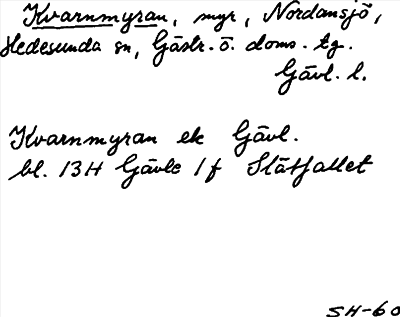 Kvarnmyran, myr, Nordansjö,
Hedesunda sn, Gästr. ö. doms. tg.
Gävl. l.
Kvarnmyran ek Gävl.
bl. 13H Gävle 1f Slåtfallet
SH-60